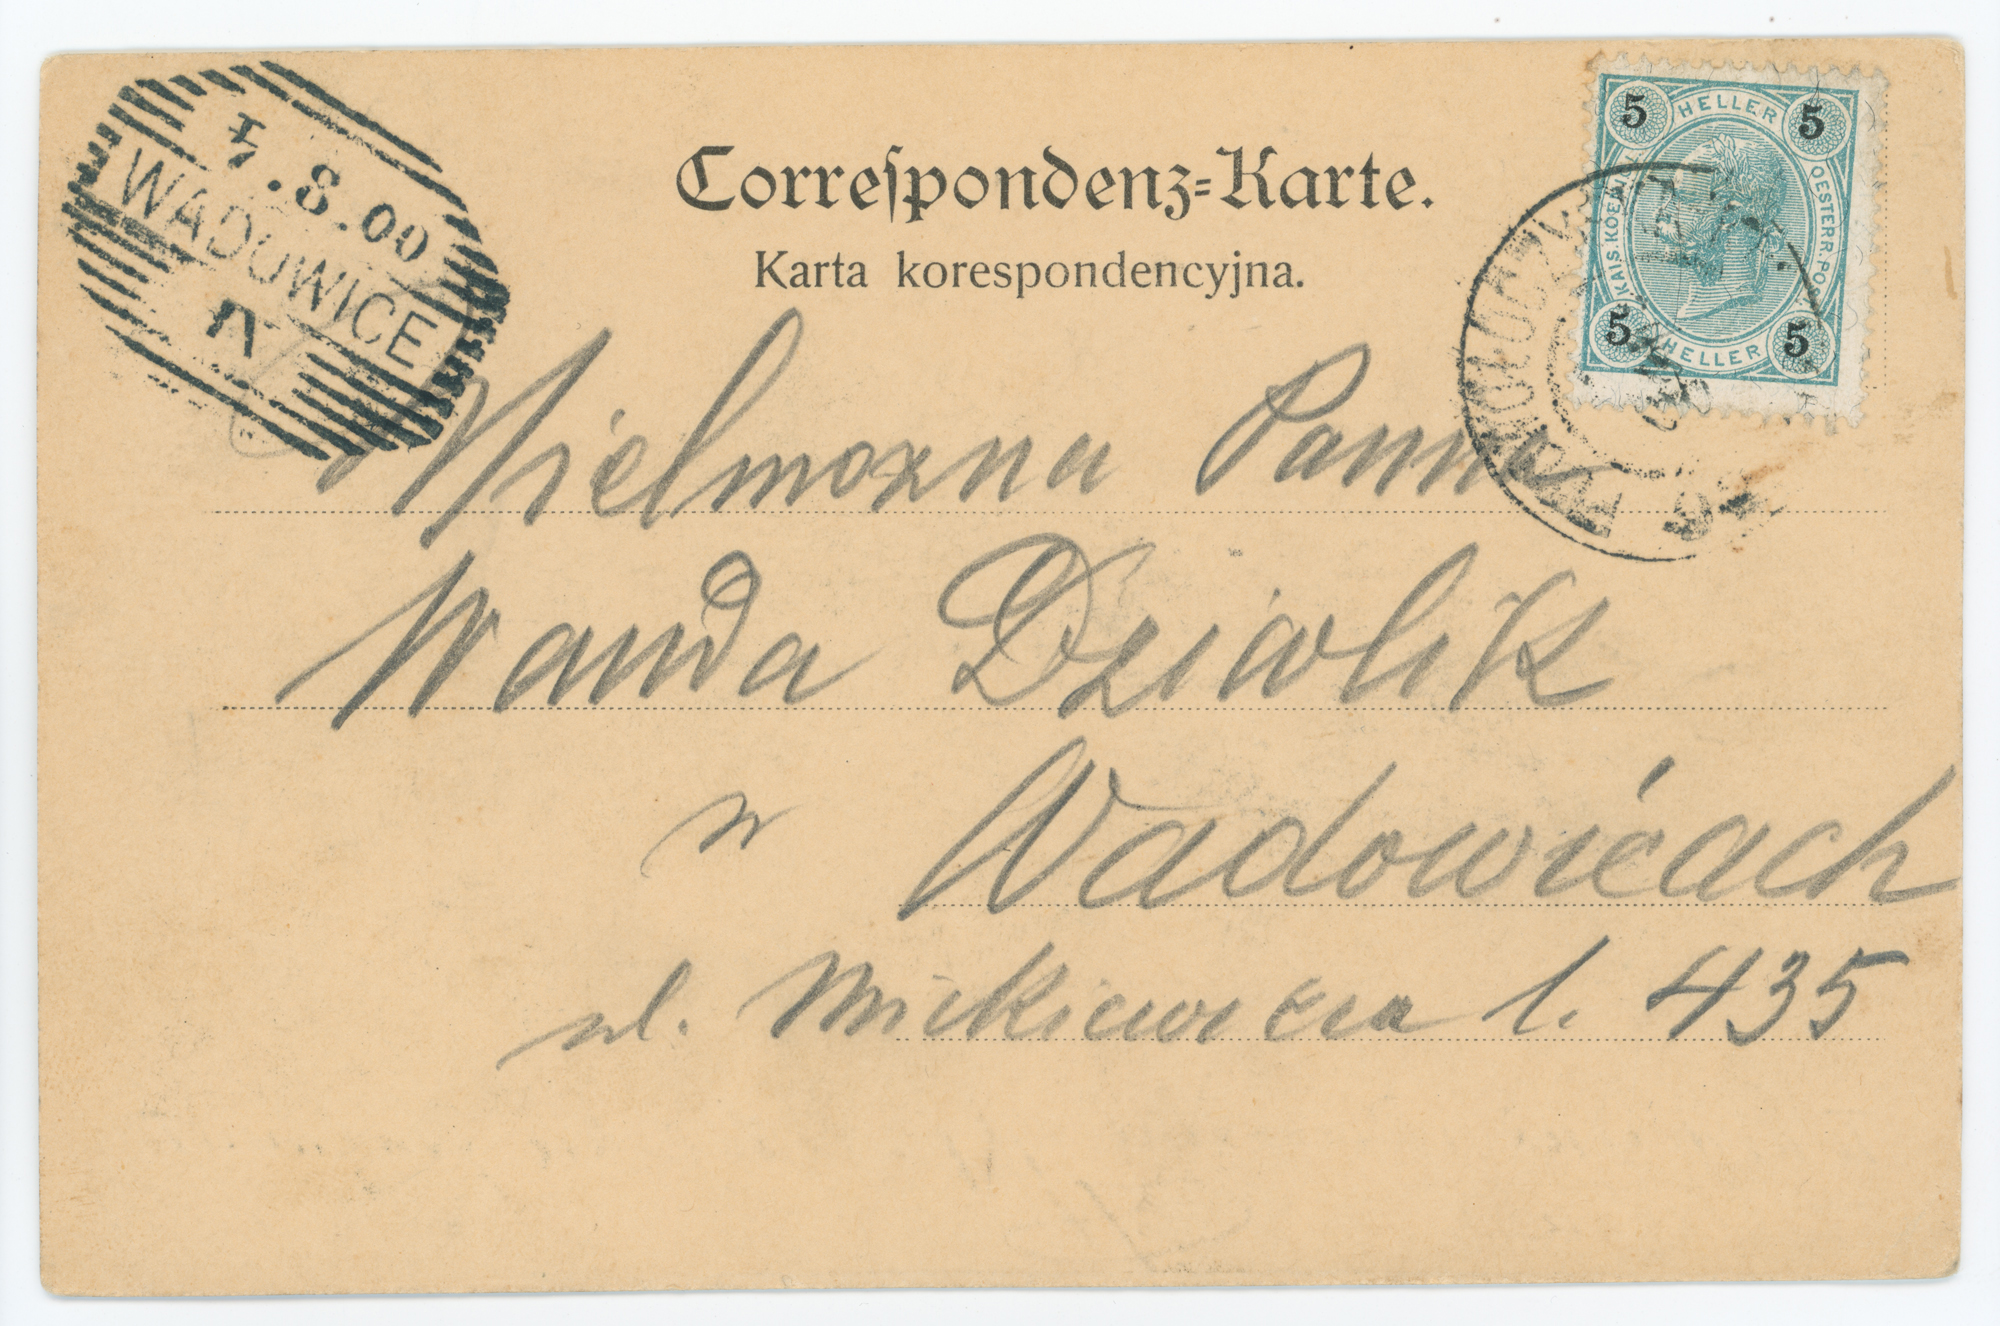 4.8.00
WADOWICE
Correspondenz-Karte.
Karta korespondencyjna.
5 HELLER 5
KAIS. KOENIGL. OESTERR. POST
5 HELLER 5
PODWOŁOCZYSKA
Wielmożna Panna
Wanda Dziwlik
w Wadowicach
ul. Mickiewicza l. 435